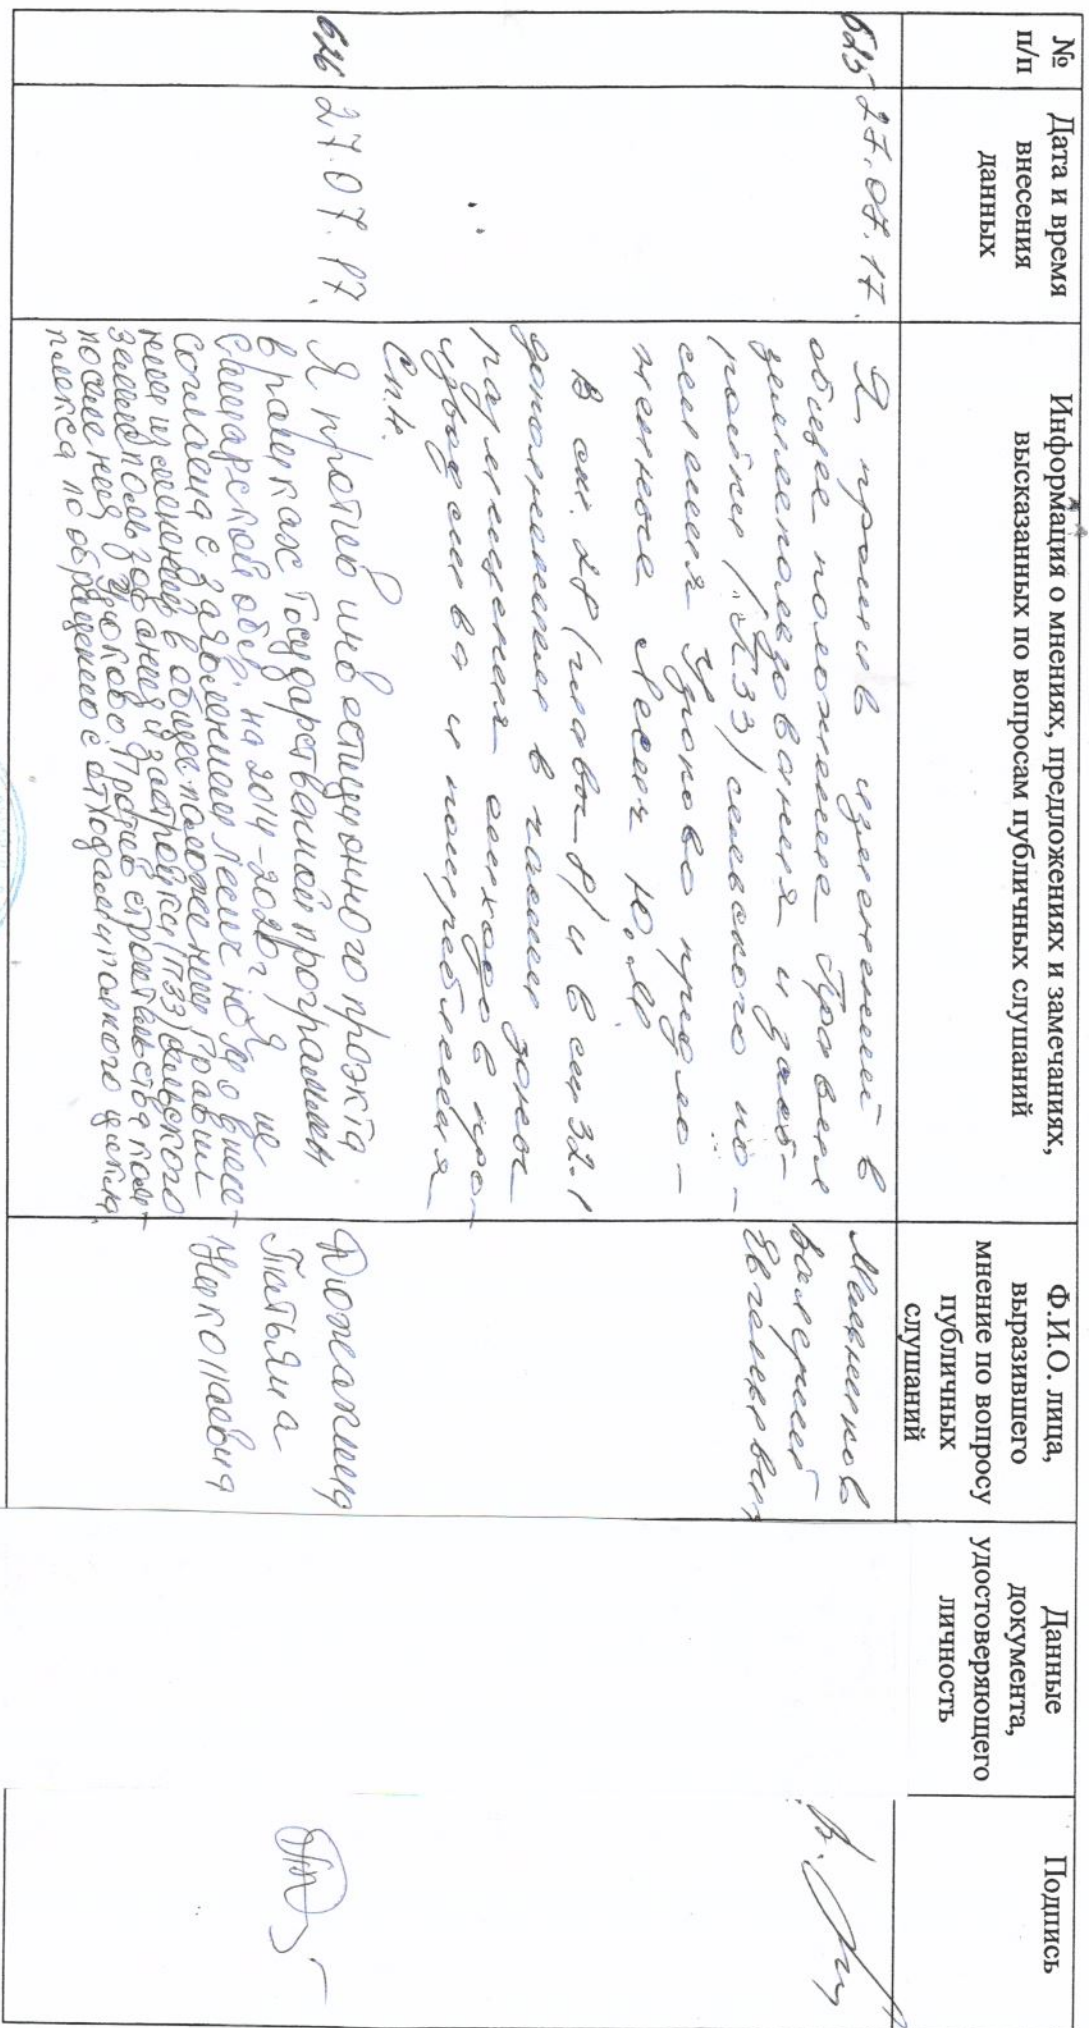 № п/п
Дата и время внесения данных
Информация о мнениях, предложениях и замечаниях, высказанных по вопросам публичных слушаний
Ф.И.О. лица, выразившего мнение по вопросу публичных слушаний
Данные документа, удостоверяющего личность
Подпись
625
27.07.17.
Я, против изменений в
общее положение Правил
землепользования и заст-
ройки /"ПЗЗ/ сельского по-
селения Удоково предло-
женное Лесич Ю.
В ст. 28 (глава 8) и в ст 32.1
дополнения в части зоны
размещения отходов про-
изводства и потребления
Сп.4.
Валерий
626
27.07.17.
Я против инвестиционного проэкта
в рамках Государственной программы
Самарской обл. на 2014-2020г Я не
согласна с заявлением Лесич Ю.М о внесе-
нии изменений в общее положение Правил
землепользования и застройки (ПЗЗ) сельского
поселения. Против строительства ком-
плекса по обращению с отходами
Татьяна
Николаевна